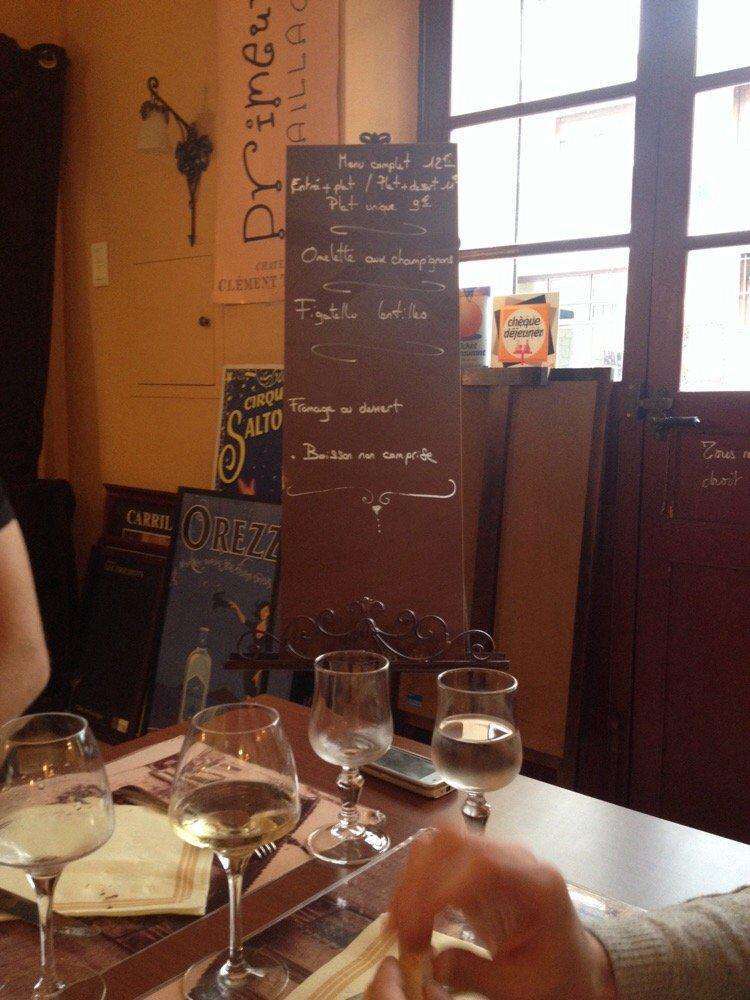 Primeu
AILLAC
CLÉMENT
Menu complet 12€
Entrée + plat / Plat + dessert 11€
Plat unique 9€
Omelette aux champignons
Figatello lentilles
Fromage ou dessert
. Boisson non comprise
chèque
déjeuner
CIRQU
SALTO
CARRIL
OREZZ
droit